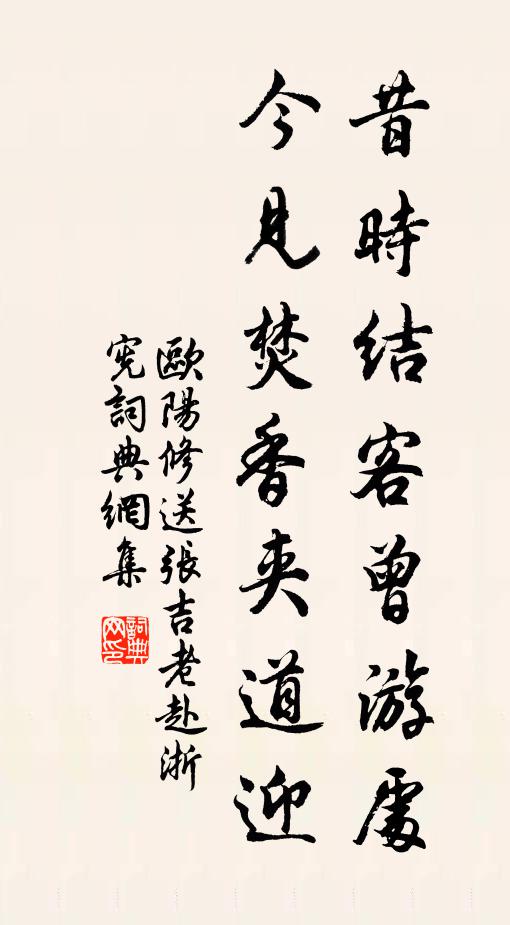 昔時結客曾游處
今見焚香夾道迎
歐陽修送張吉老赴浙
憲詞典網集
詞典网印